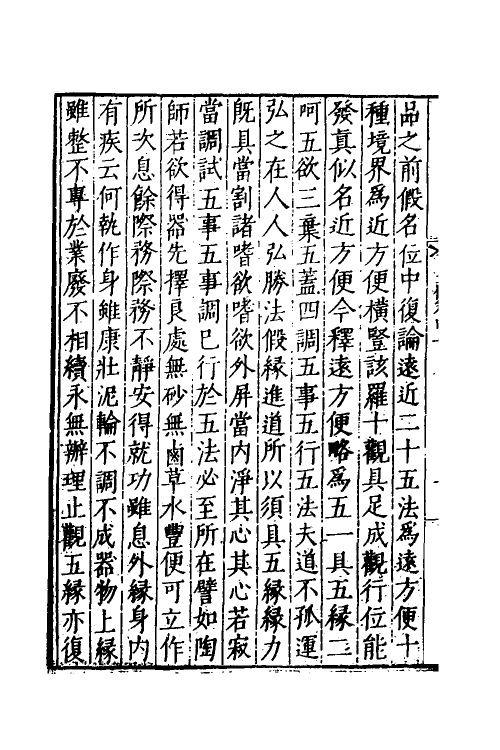 品之前假名位中復論遠近二十五法為遠方便十
種境界為近方便橫豎該羅十觀具足成觀行位能
發真似名近方便今釋遠方便略為五一具五緣二
呵五欲三棄五蓋四調五事五行五法夫道不孤運
弘之在人人弘勝法假緣進道所以須具五緣緣力
旣具當割諸嗜欲嗜欲外屏當內淨其心其心若寂
當調試五事五事調已行於五法必至所在譬如陶
師若欲得器先擇良處無砂無鹵草水豐便可立作
所次息餘際務際務不靜安得就功雖息外緣身內
有疾云何執作身雖康壯泥輪不調不成器物上緣
雖整不專於業廢不相續永無辦理止觀五緣亦復